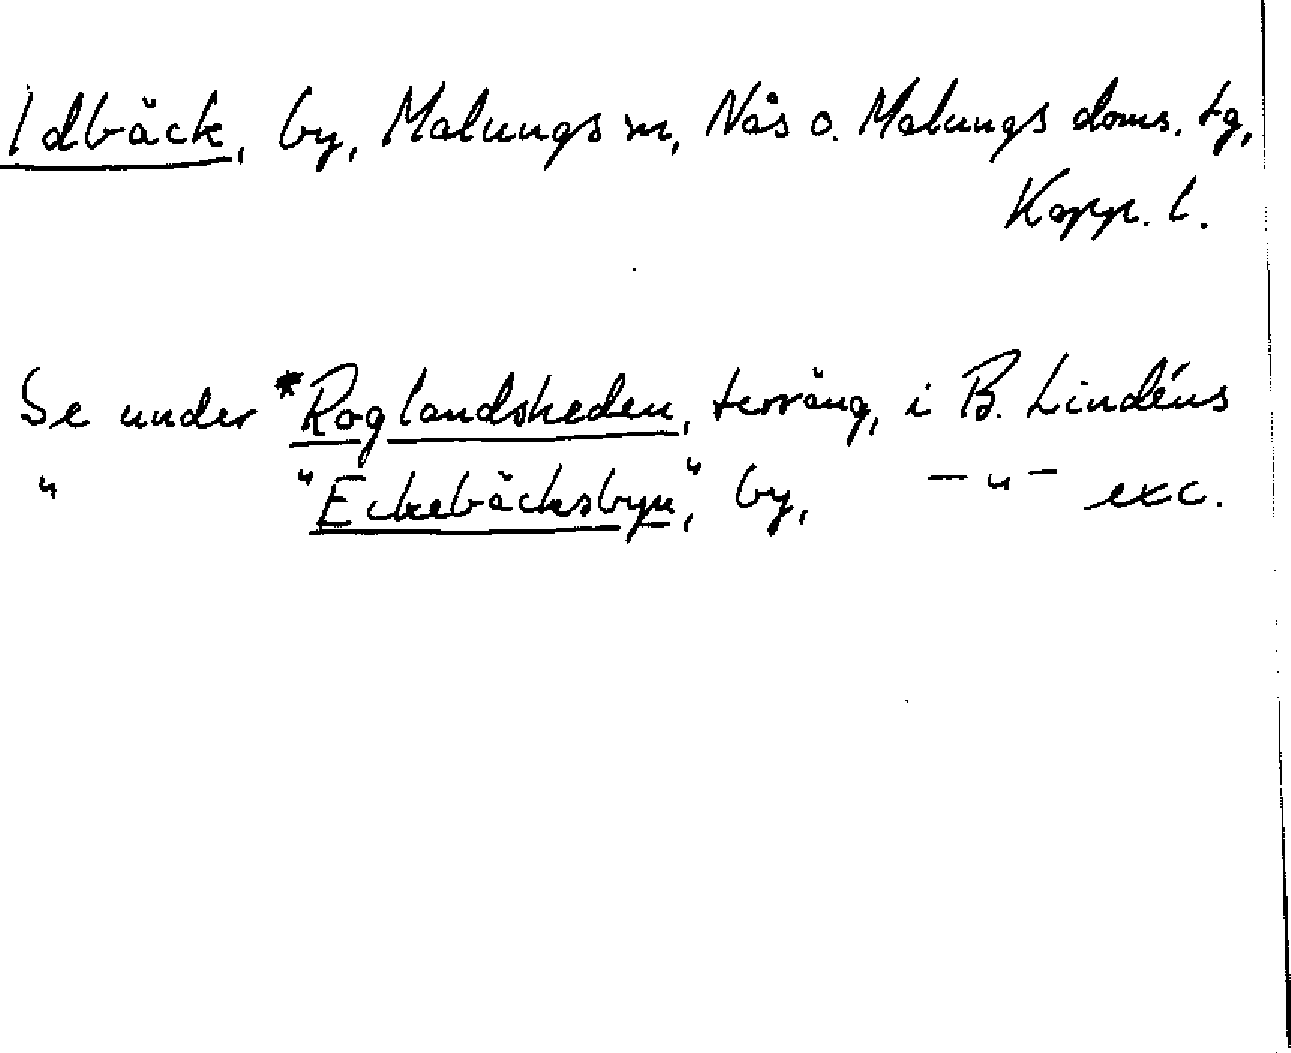 Idbäck, by, Malungs sn, Nås o. Malungs doms. tg,
Kopp. l.
Se under *Roglandsheden, terräng, i B. Lindéns
" "Eckebäcksbyn", by, —"— exc.